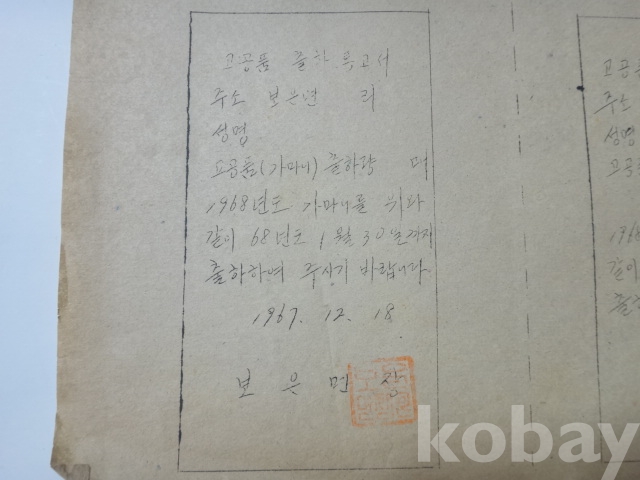 고공품 출하 촉고서
주소 보은면 리
성명
고공품(가마니) 출하량 매
1968년도 가마니를 위와
같이 68년도 1월 30일까지
출하하여 주시기 바랍니다
1967. 12. 18
보은면장
고공품
주소
성명
고공
1968
같이
출
kobay